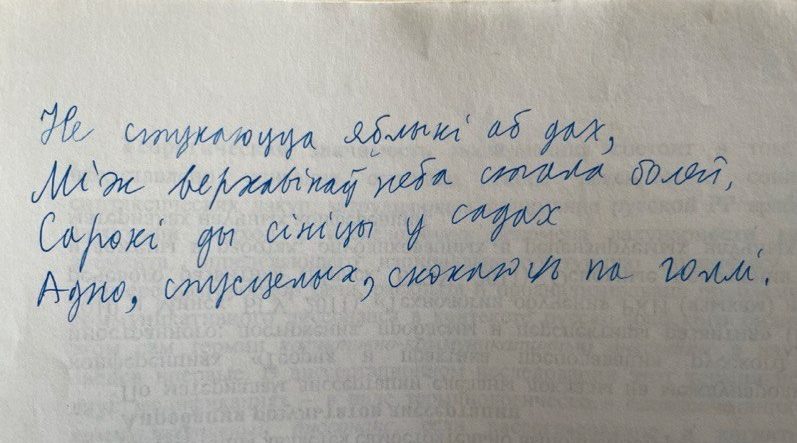 Не стукаюцца яблыкі аб дах,
Між верхавінаў неба стала болей,
Сарокі ды сініцы у садах
Адно, спусцелых, скокаюць па голлі.